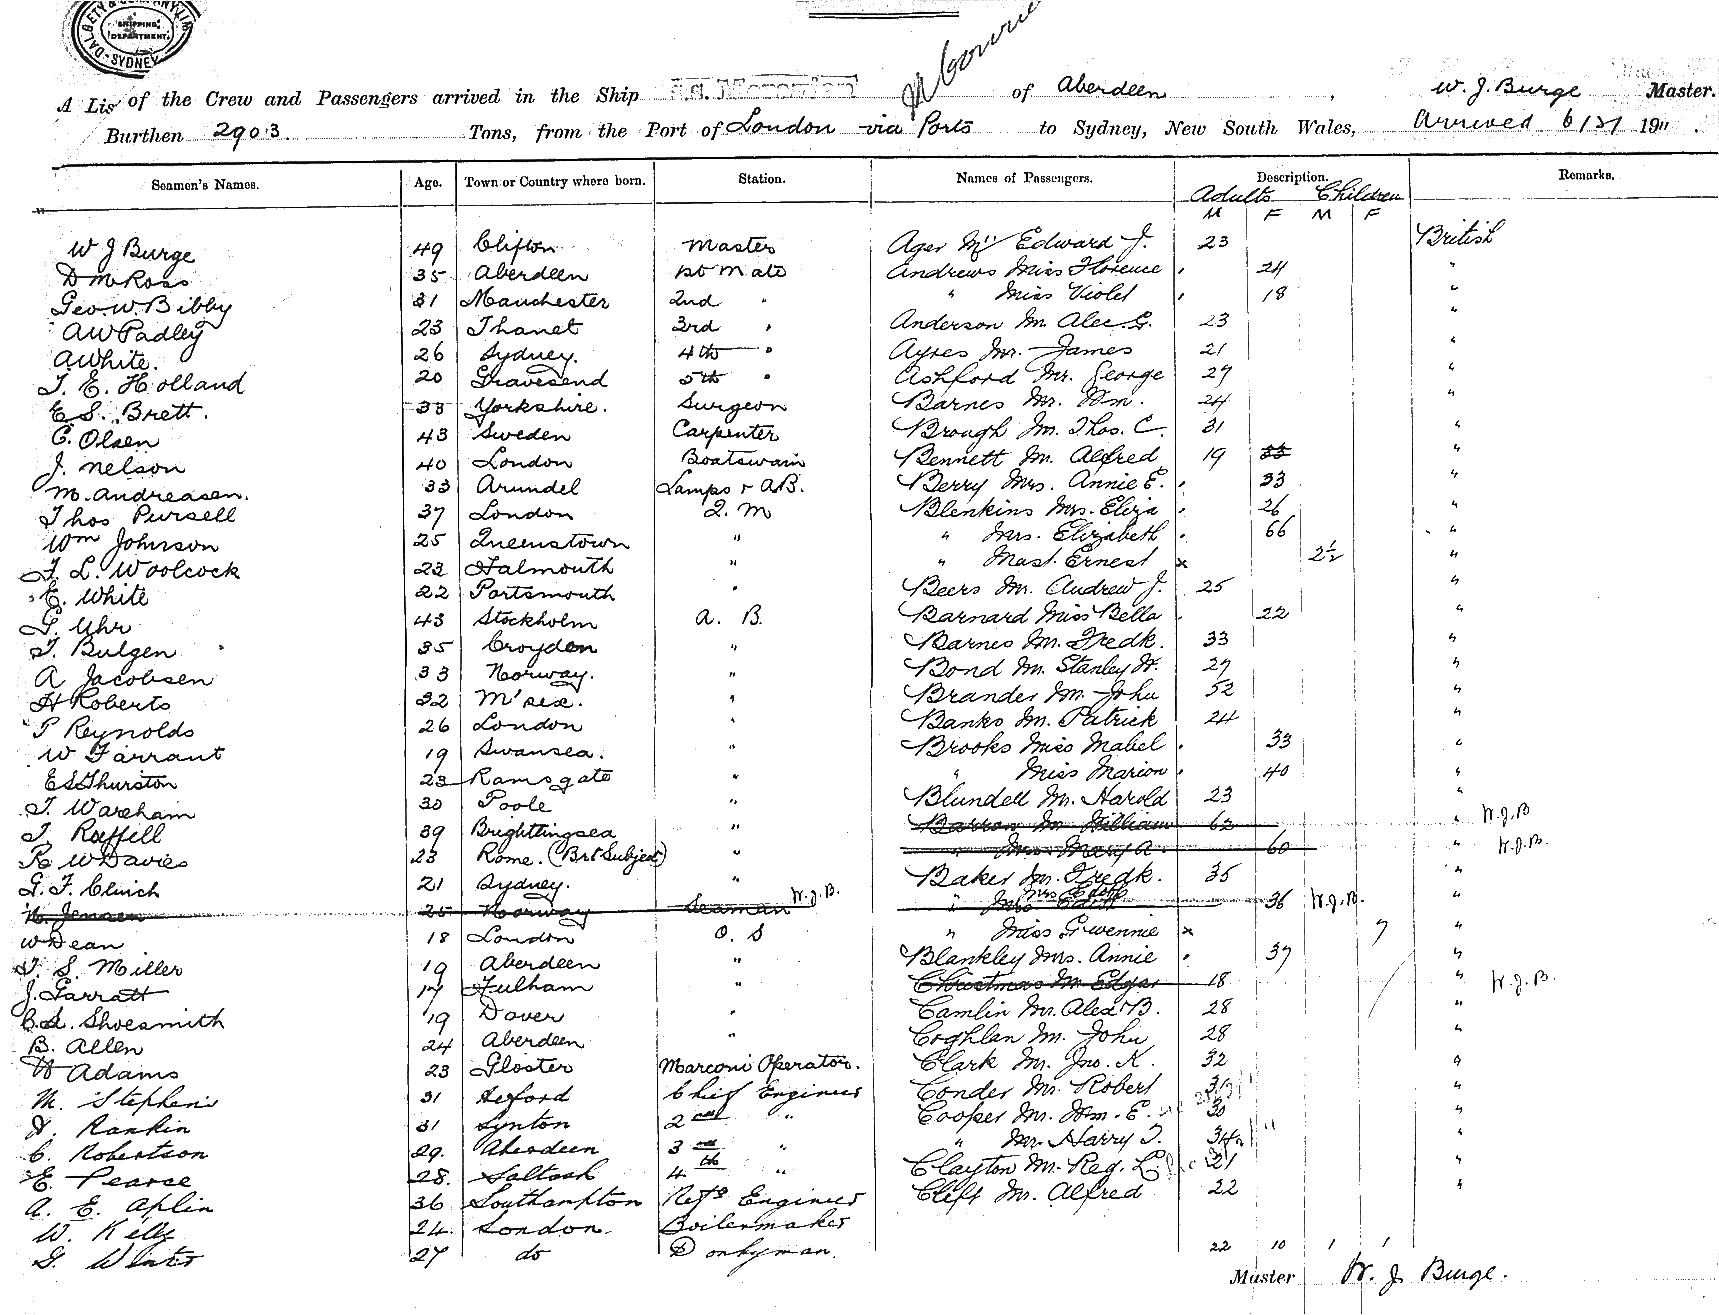 DALGETY & COMPANY LTD
SHIPPING DEPARTMENT.
SYDNEY
A List of the Crew and Passengers arrived in the Ship S.S. Moravian of Aberdeen, W. J. Burge Master.
Burthen 2903 Tons, from the Port of London via Ports to Sydney, New South Wales, Arrived 1911.
Seamen's Names. Age. Town or Country where born. Station. Names of Passengers. Description. Remarks.
Adults Children
M F M F
W J Burge 49 Clifton Master Ager Mr Edward J. 23 British
D M Ross 35 Aberdeen 1st Mate Andrews Miss Florence 24 "
Geo. W. Bibby 31 Manchester 2nd " " Miss Violet 18 "
A W Padley 23 Thanet 3rd " Anderson Mr Alec. G. 23 "
A White. 26 Sydney. 4th " Ayres Mr. James 21 "
T. E. Holland 20 Gravesend 5th " Ashford Mr. George 27 "
E S. Brett. 33 Yorkshire. Surgeon Barnes Mr. Wm. 24 "
C. Olsen 43 Sweden Carpenter Brough Mr. Thos. C. 31 "
J. Nelson 40 London Boatswain Bennett Mr. Alfred 19 33 "
M. Andreasen. 33 Arundel Lamps & A.B. Berry Mrs. Annie E. 33 "
Thos Pursell 37 London Q. M Blenkins Mrs. Eliza 26 "
Wm Johnson 25 Queenstown " " Mrs. Elizabeth 66 "
F. L. Woolcock 23 Falmouth " " Mast. Ernest x 2½ "
E. White 22 Portsmouth " Beers Mr. Andrew J. 25 "
G. Uhr 43 Stockholm A. B. Barnard Miss Bella 22 "
T. Bulgen 35 Croydon " Barnes Mr. Fredk. 33 "
A Jacobsen 33 Norway. " Bond Mr. Stanley W. 27 "
H Roberts 32 M'sex. " Brander Mr. John 52 "
P Reynolds 26 London " Banks Mr. Patrick 24 "
W Farrant 19 Swansea. " Brooks Miss Mabel 33 "
E S Thurston 23 Ramsgate " " Miss Marion 40 "
T. Wareham 30 Poole " Blundell Mr. Harold 23 "
T. Raffill 39 Brightlingsea " Barrow Mr William 62 " W.J.B
R W Davies 23 Rome. (Brt Subject) " " Mrs Mary A. 60 " W.J.B.
G. F. Clinch 21 Sydney. " Baker Mr. Fredk. 35 "
N. Jensen 25 Norway Seaman W.J.B. " Mrs Edith 36 W.J.B. "
W Dean 18 London O. S " Miss Gwennie x 7 "
J. S. Miller 19 Aberdeen " Blankley Mrs. Annie 37 "
J. Garratt 17 Fulham " Christmas Mr Edgar 18 " W.J.B.
Shoesmith 19 Dover " Camlin Mr. Alex. B. 28 "
B. Allen 24 Aberdeen " Coghlan Mr. John 28 "
W Adams 23 Gloster Marconi Operator. Clark Mr. Jno. K. 32 "
M. Stephens 31 Chief Engineer Conder Mr. Robert "
Rankin 31 2nd " Cooper Mr. Wm. E. 30 "
C. Robertson 29. Aberdeen 3rd " " Mr. Harry T. "
E. Pearce 28. Saltash 4th " Clayton Mr. Reg. 21 "
A. E. Aplin 36 Southampton Engineer Clift Mr. Alfred 22 "
W. Kelly 24. London. Boilermaker
G. Winter 27 do Donkyman. 22 10 1 1
Master W. J Burge.